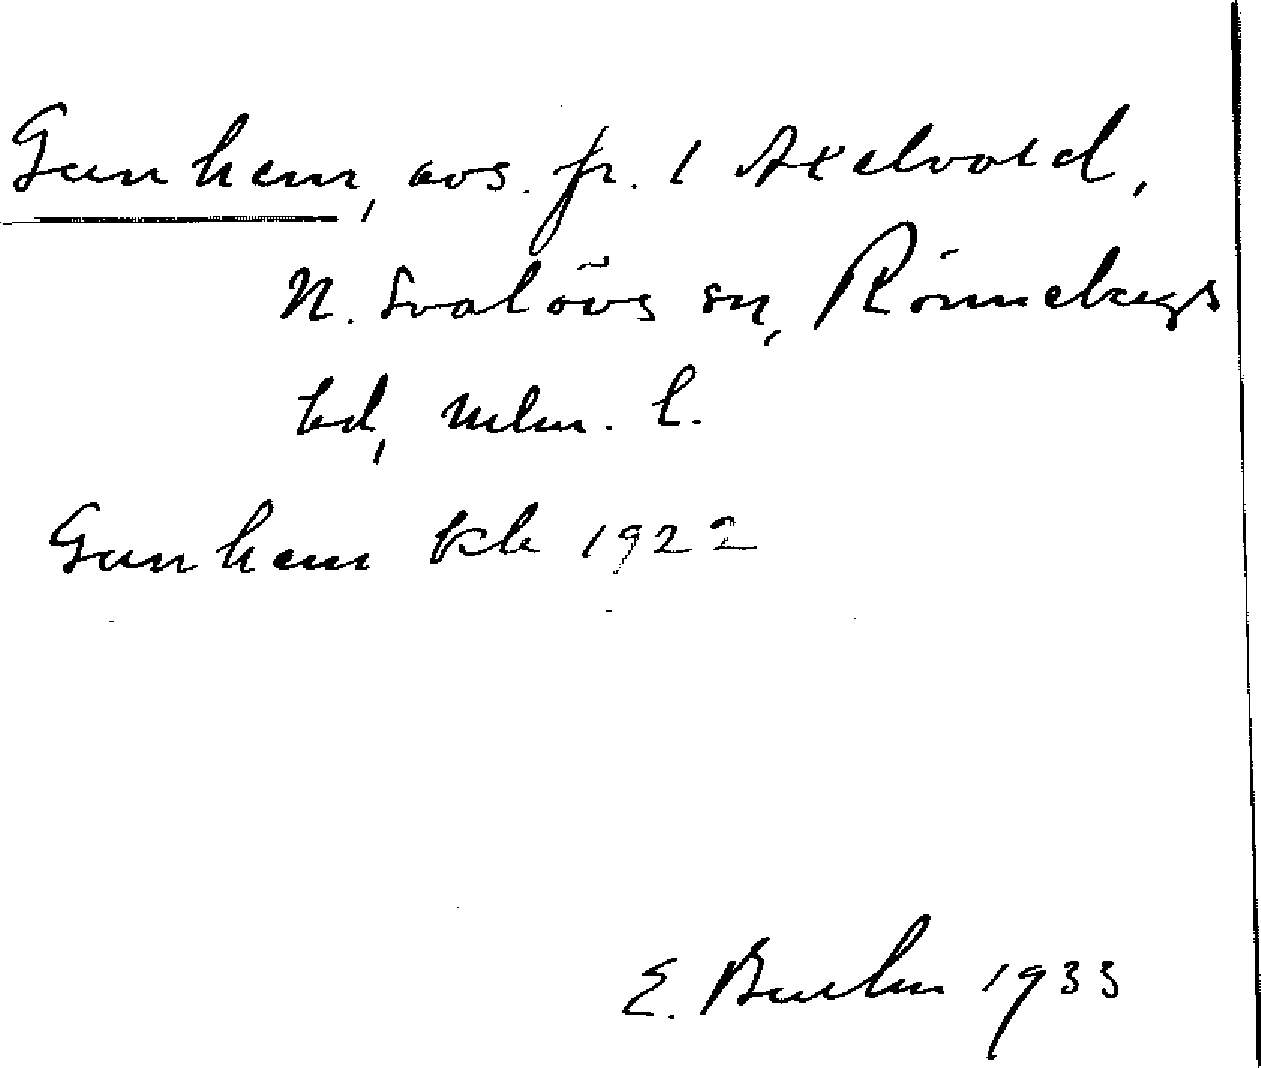 Gunhem, avs. fr. 1 Axelvold,
N. Svalövs sn, Rönnebergs
hd, Mlm. l.
Gunhem kb 1922
E. 1933